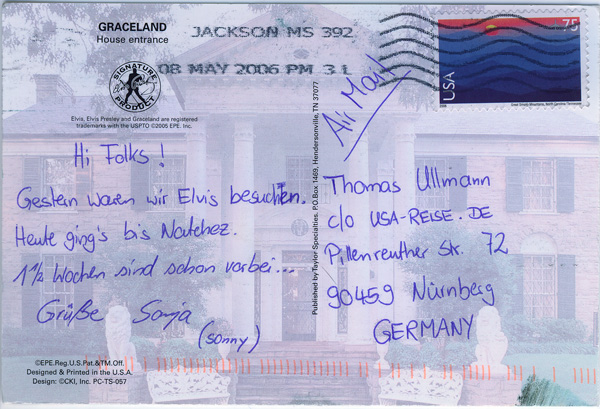 GRACELAND
House entrance
JACKSON MS 392
08 MAY 2006 PM 3 L
75
USA
SIGNATURE
PRODUCT
Elvis, Elvis Presley and Graceland are registered
trademarks with the USPTO ©2005 EPE, Inc.
Air Mail
Hi Folks!
Gestern waren wir Elvis besuchen.
Heute ging's bis Natchez.
1 1/2 Wochen sind schon vorbei...
Grüße Sonja
(sonny)
Published by Taylor Specialties. P.O.Box 1469, Hendersonville, TN 37077
Thomas Ullmann
c/o USA-REISE.DE
Pillenreuther Str. 72
90459 Nürnberg
GERMANY
©EPE.Reg.U.S.Pat.&TM.Off.
Designed & Printed in the U.S.A.
Design: ©CKI, Inc. PC-TS-057